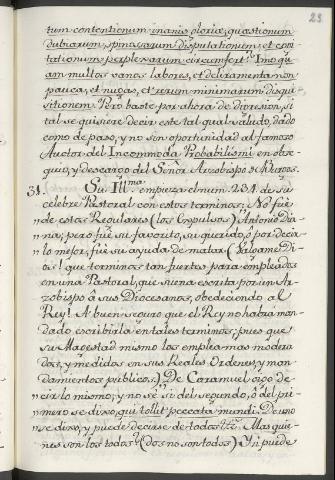 23.
tum contentionum inania gloria; quæstionum
dubiarum, spinosarum disputationum, et cogi
tationum perplexarum circumfert. Imo qu
am multos vanos labores, et deliramenta non
pauca, et nugas, et rerum minimarum disqui
sitionem. Pero baste por ahora de diversion, si
tal se quisiere decir este tal qual saludo, dado
como de paso, y no sin oportunidad al famoso
Auctor del Incommoda Probabilismi en obse
quio, y descargo del Señor Arzobispo de Burgos.
31. Su Ill.ma empieza el num. 231. de su
celebre Pastoral con estos terminos: No fue
de estos Regulares (los Expulsos) Antonio Dia
na; pero fue su favorito, su querido, ó por decir
lo mejor, fue su ayuda de matar (Valgame Di
os! que terminos tan fuertes para empleados
en una Pastoral, que suena escrita por un Ar
zobispo á sus Diocesanos, obedeciendo al
Rey! A buen seguro que el Rey no habra man
dado escribirla en tales terminos; pues que
su Magestad mismo los emplea mas modera
dos, y medidos en sus Reales Ordenes, y man
damientos publicos). De Caramuel oigo de
cir lo mismo; y no sé si del segundo, ó del pri
mero se dixo, qui tollit peccata mundi. De uno
se dixo, y puede decirse de todos. Mas quie
nes son los todos? (dos no son todos) Y si puede